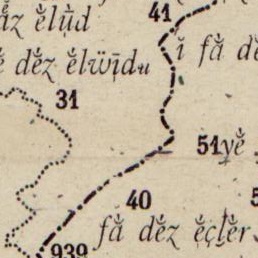 ăz ĕlūd
41
ĭ fă dĕ
dĕz ĕlẅīdu
31
51 yĕ
40
fă dĕz ĕçlĕr
939